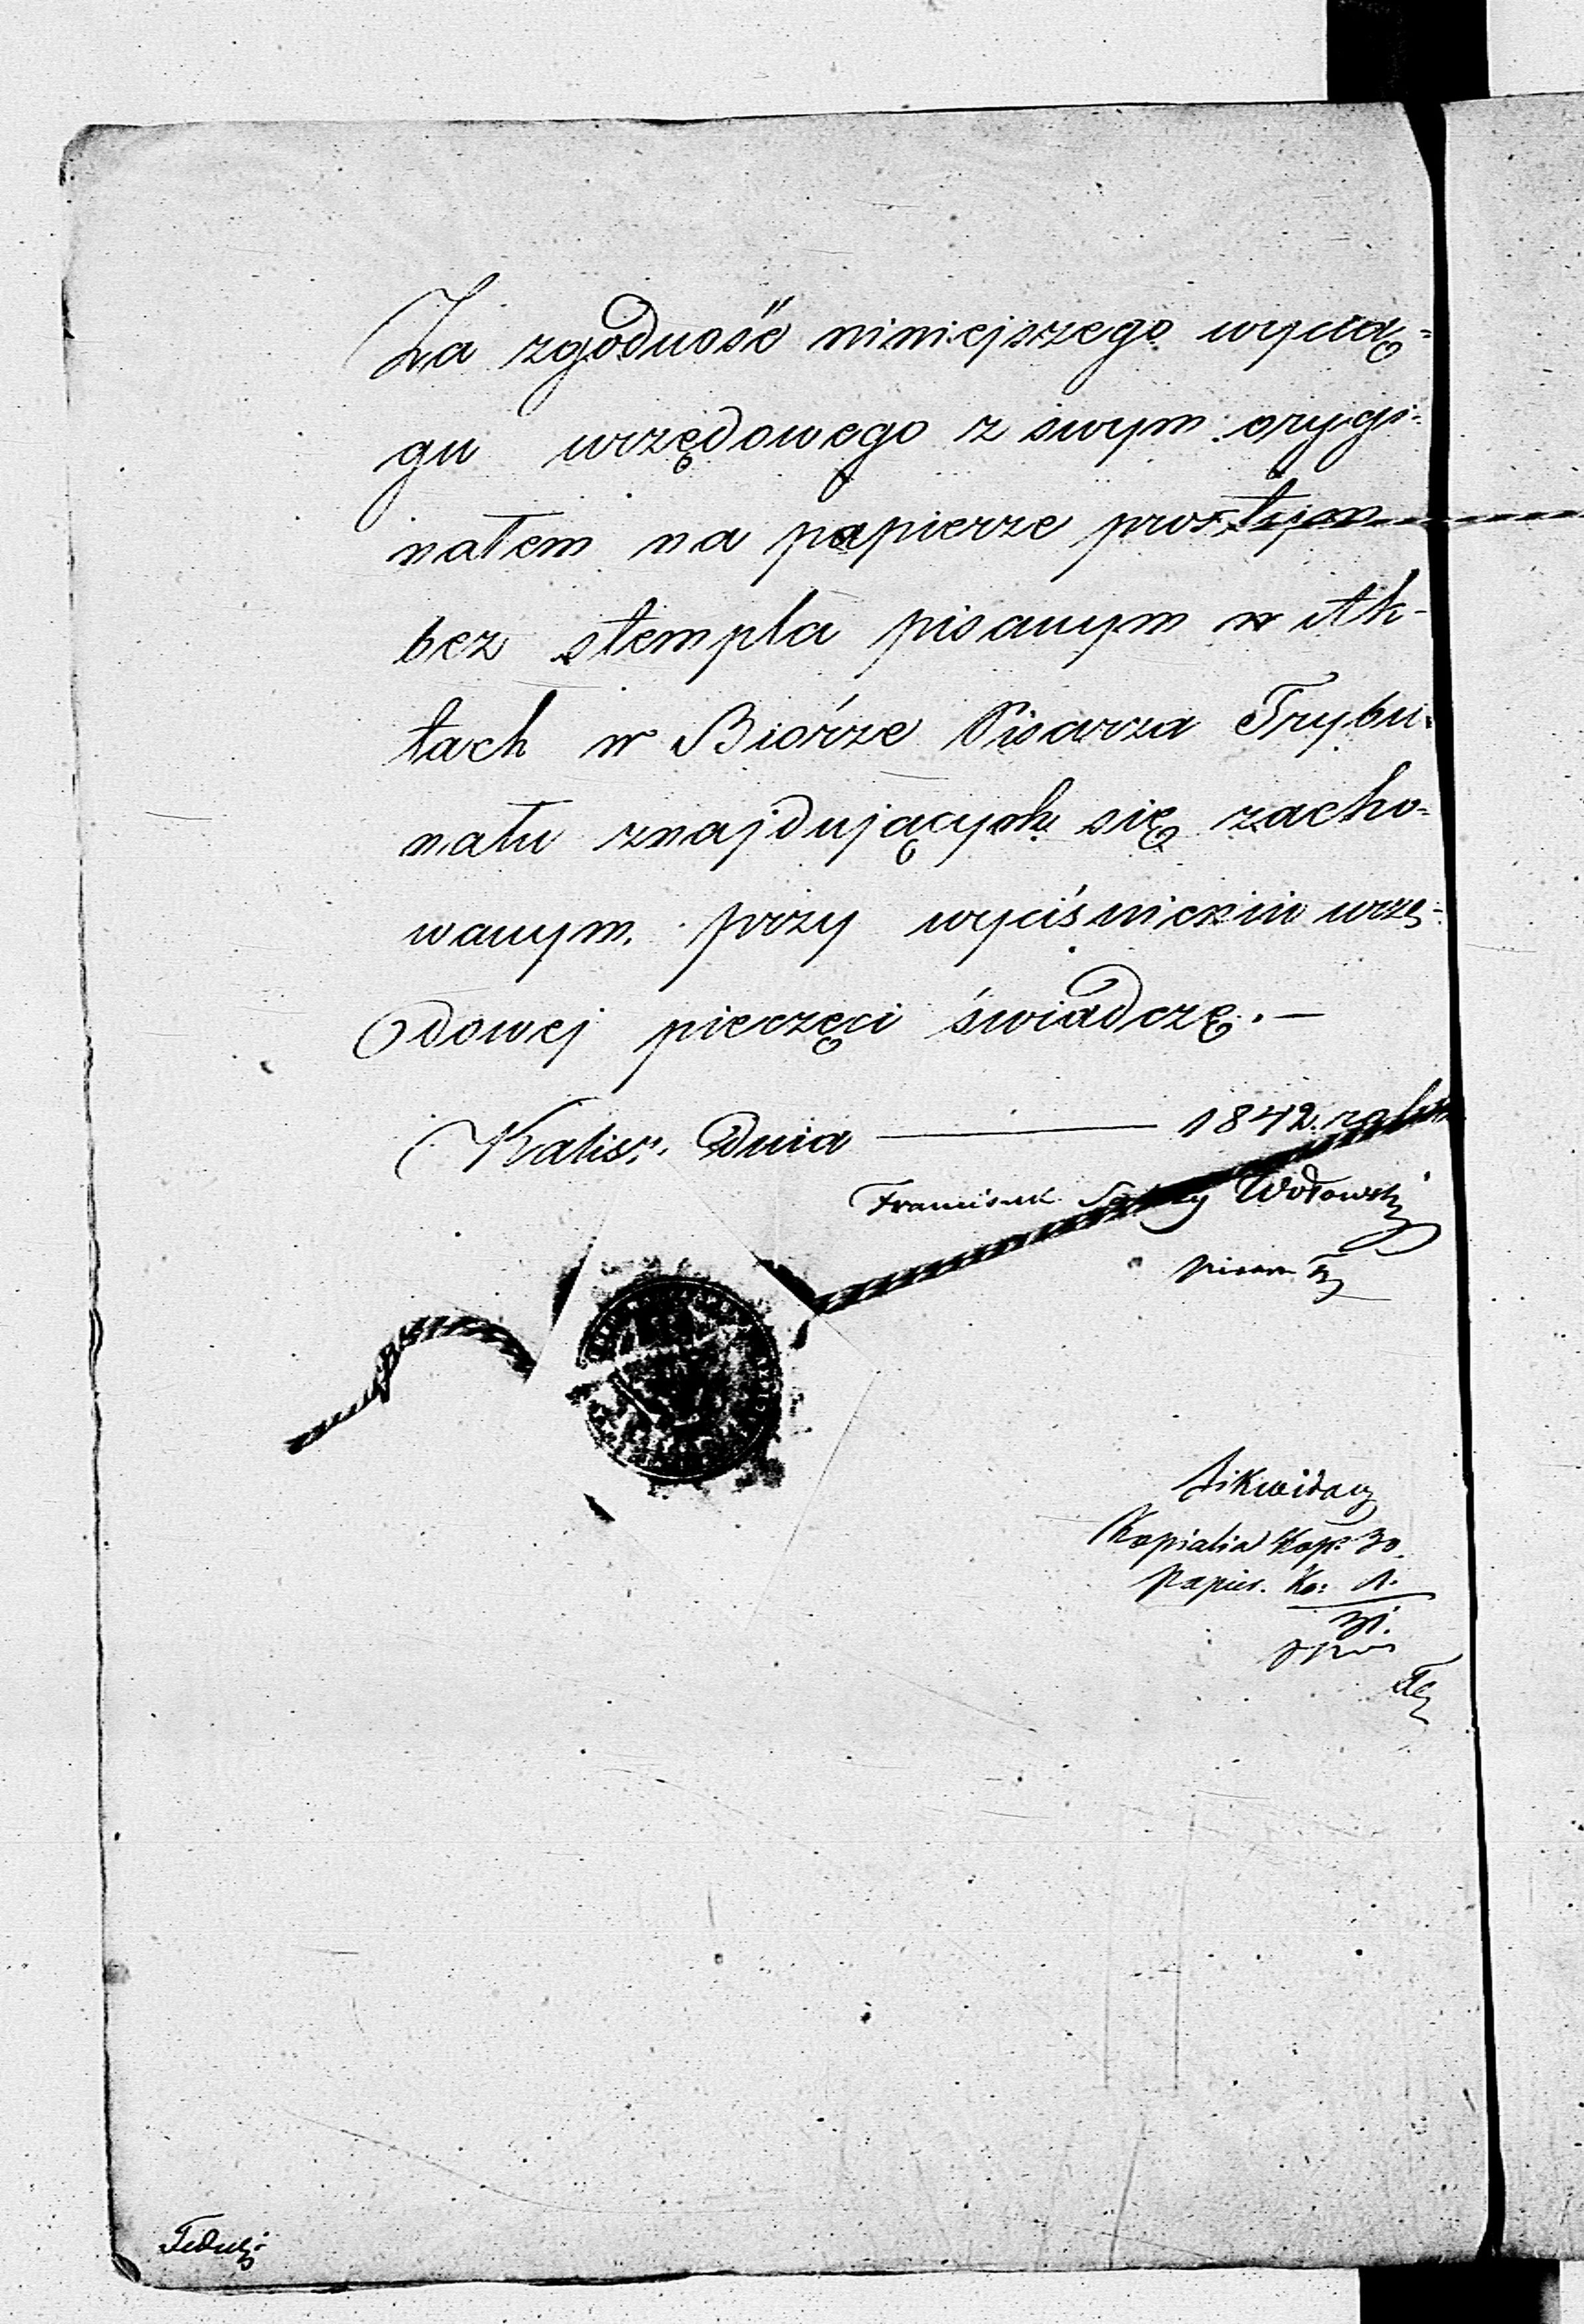 Za zgodność niniejszego wycią=
gu urzędowego z swym orygi=
nałem na papierze prostym
bez stempla pisanym w Ak-
tach w Biórze Pisarza Trybu=
nału znajdujących się zacho=
wanym przy wyciśnieniu urzę=
dowej pieczęci świadczę. —
Kalisz. Dnia — 1842. roku
Franciszek Wołowski
pisarz Try
Likwidacy
Kopialia Kop. 30.
Papier. Ko: 1.
31.